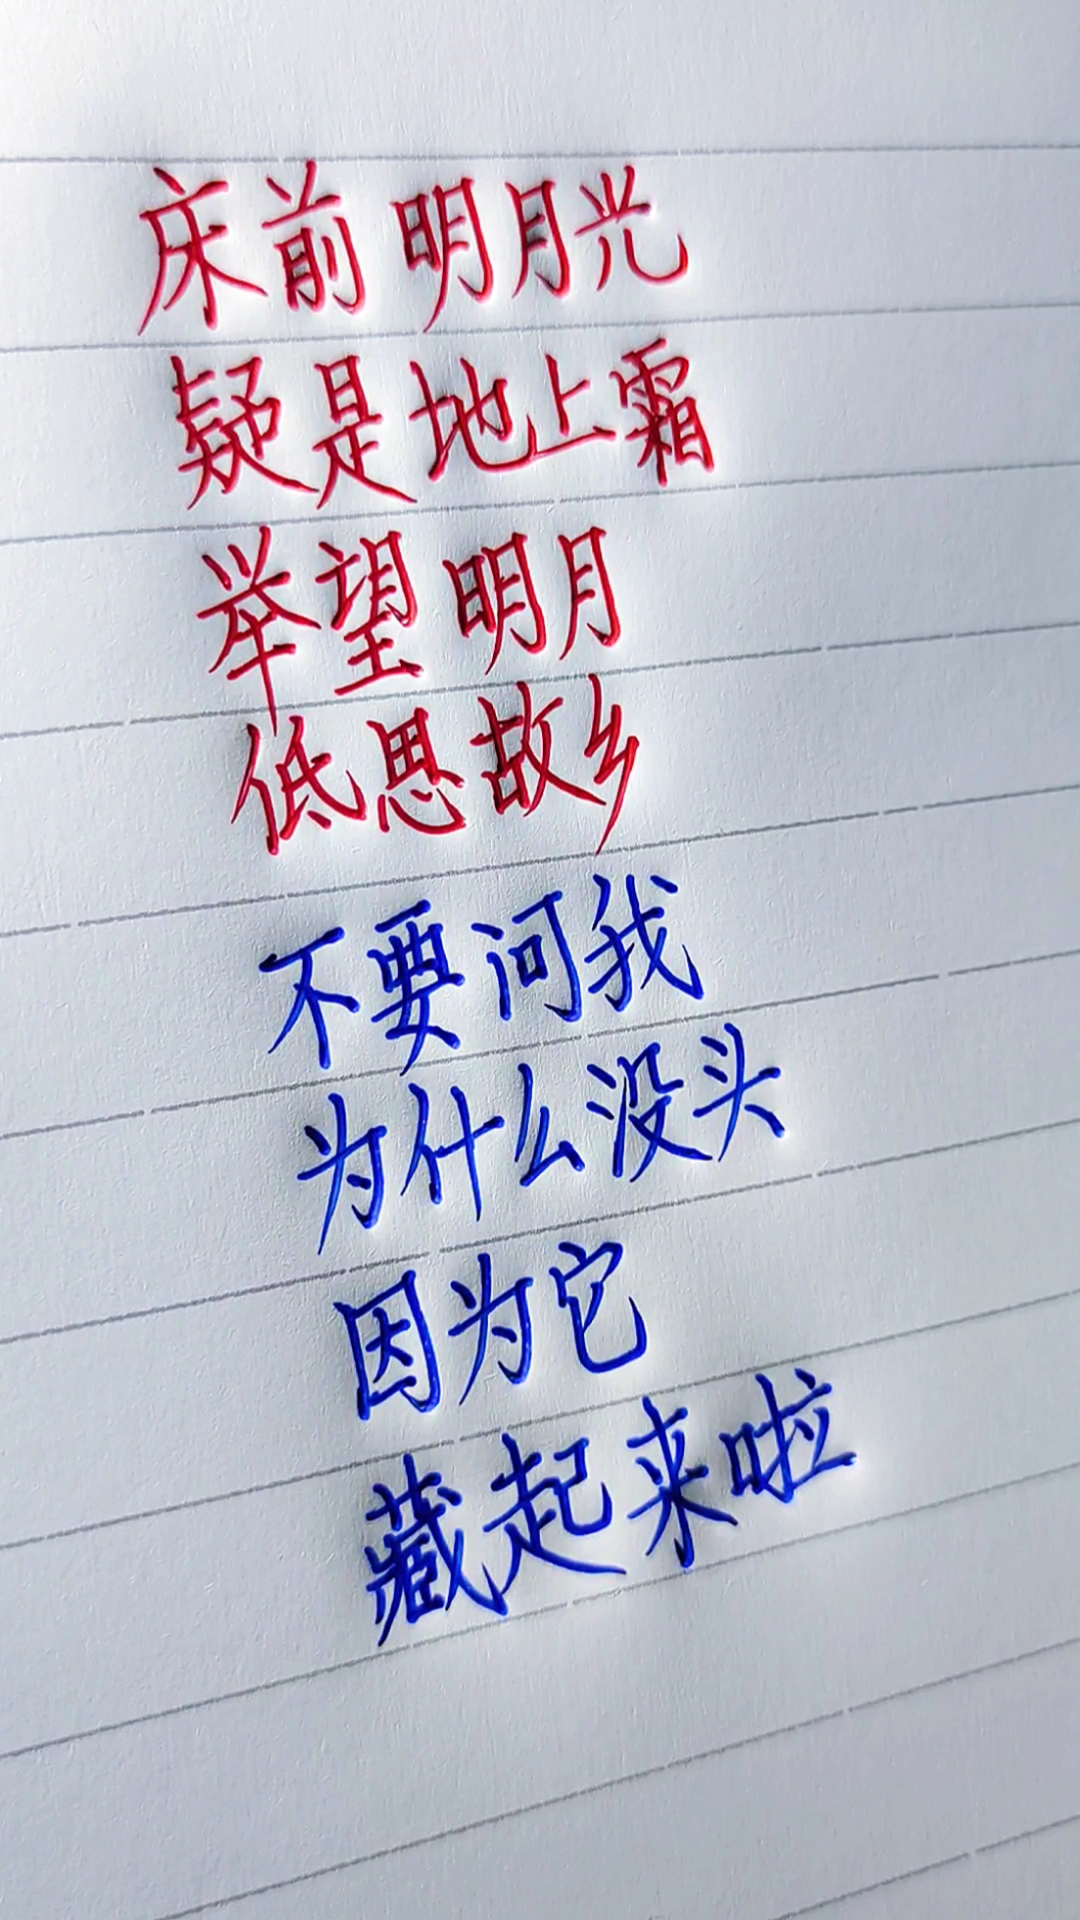 床前明月光
疑是地上霜
举望明月
低思故乡
不要问我
为什么没头
因为它
藏起来啦